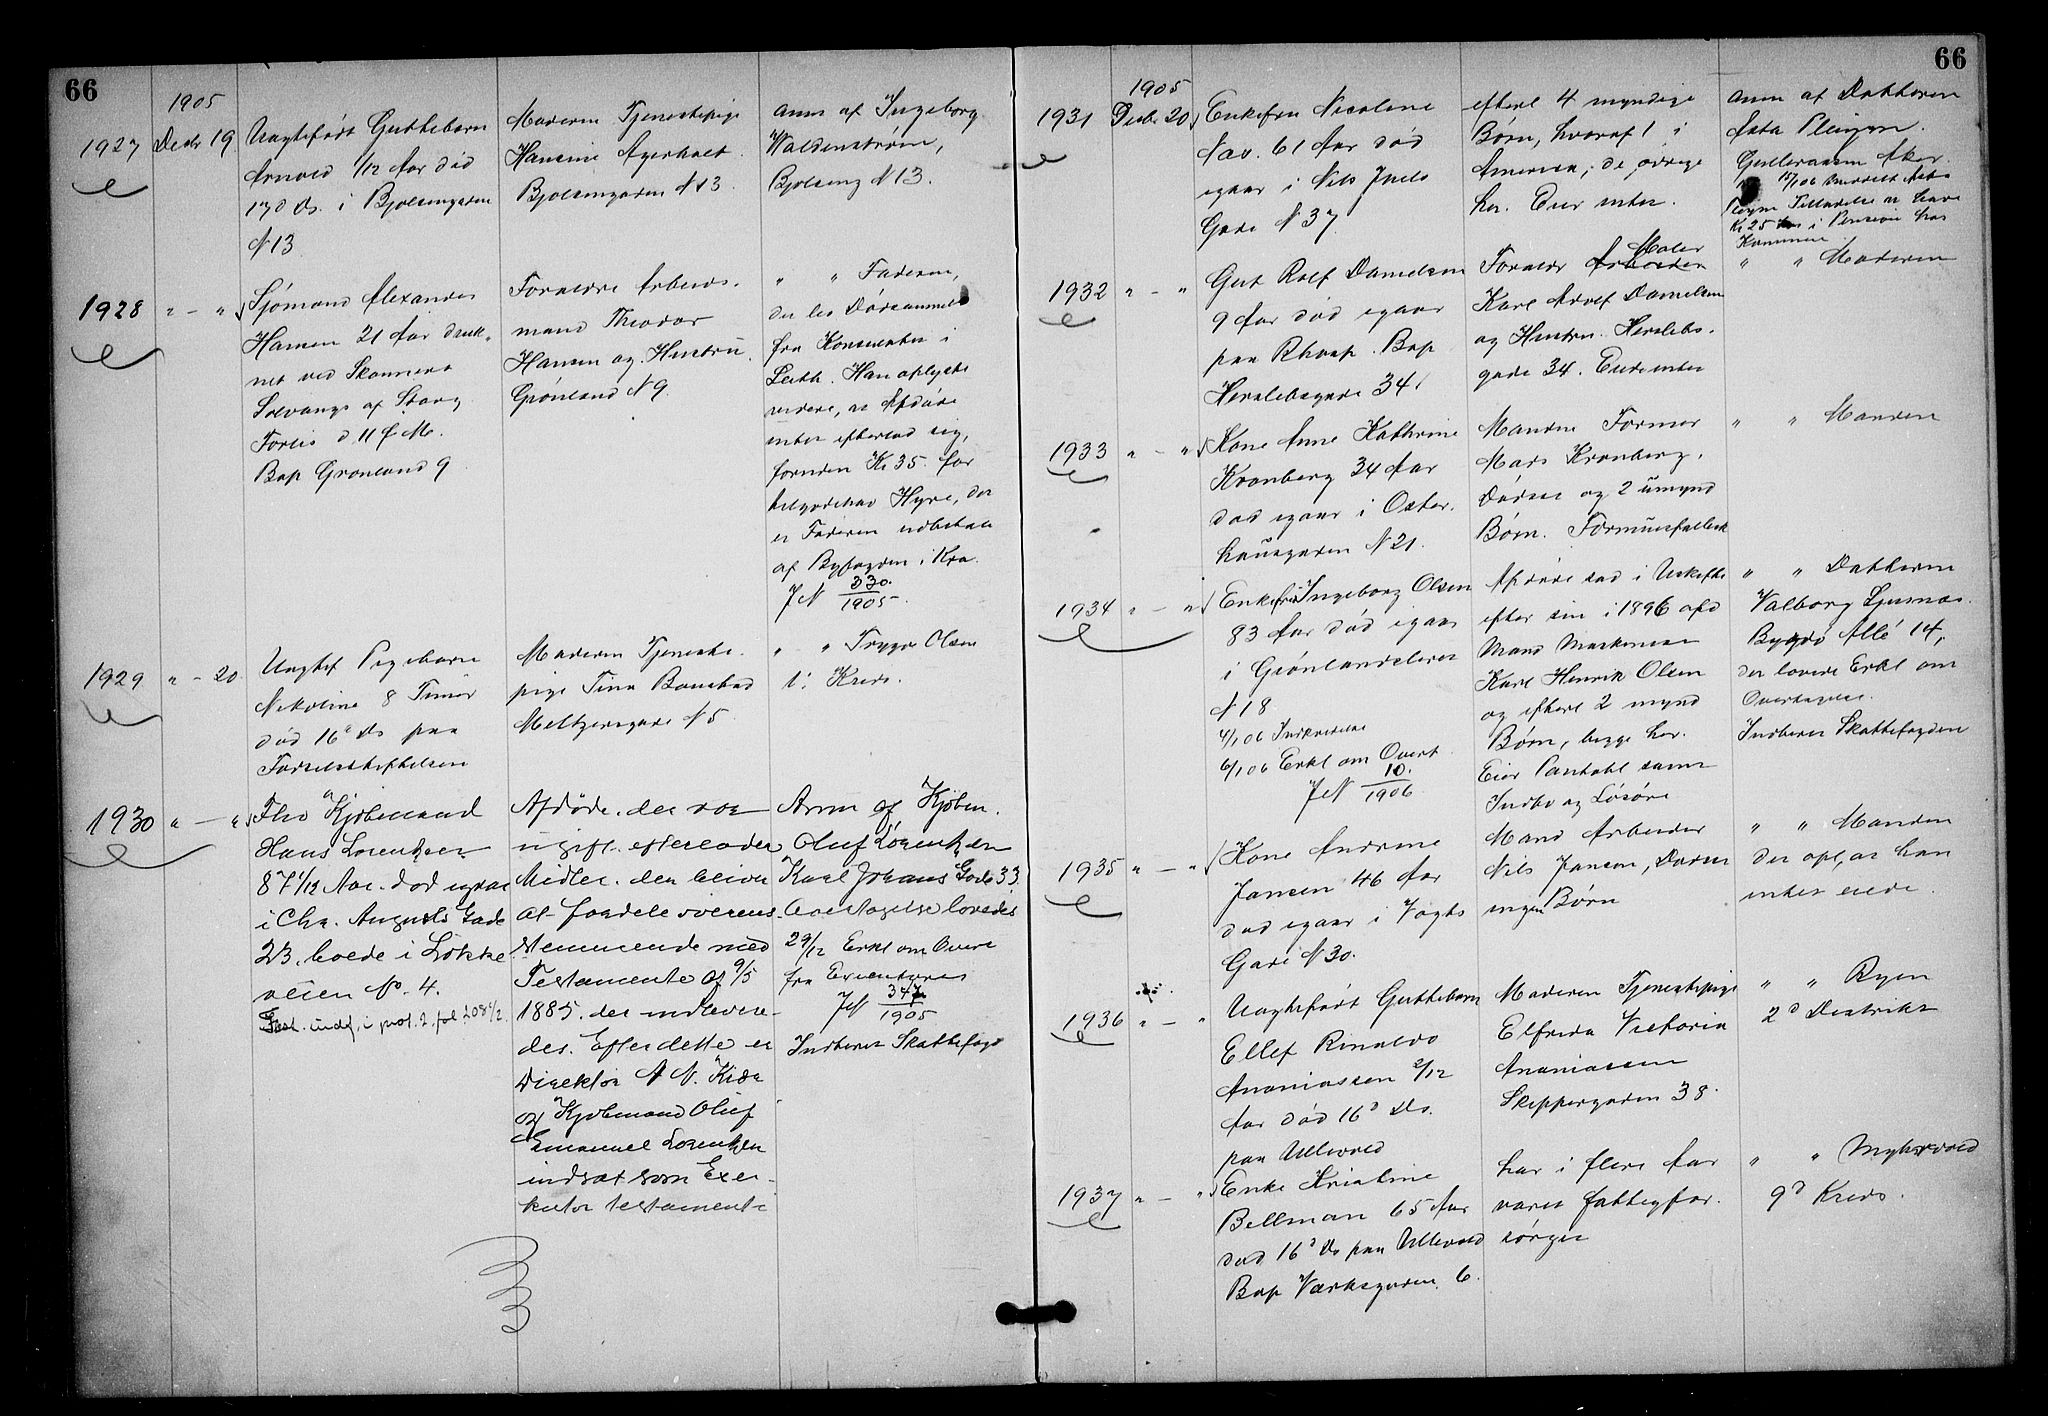 66
1905
1927
Decbr 19
Uægtefødt Guttebarn
Arnold 1/12 Aar død
17d ds. i Bjølsengaden
N 13
Moderen Tjenestepige
Hansine Agerholt
Bjølsengaden N 13.
Anm af Ingeborg
Waldenstrøm,
Bjølseng N 13.
1928
" - "
Sjømand Alexander
Hansen 21 Aar druk-
net ved Skonnert
Solvangs af Stavg
Forlis d 11 f M.
Bop Grønland 9
Forældre Arbeids-
mand Theodor
Hansen og Hustru
Grønland N 9.
" " Faderen,
der lev Dødsanmeld
fra Konsulatet i
Leith. Han oplyste
videre, at Afdøde
intet efterlod sig,
foruden Kr 35 for
tilgodehav Hyre, der
er Faderen udbetalt
af Byfogden i Kra.
JN 330/1905.
1929
" - 20
Uægtef Pigebarn
Nikoline 8 Timer
død 16d ds paa
Fødselsstiftelsen
Moderen Tjeneste-
pige Tina
Meltzersgade N 5
" " Trygve Olsen
1: Kreds.
1930
" - "
Fhv Kjøbmand
Hans Lorentzen
87 1/12 Aar. død igaar
i Chr. Augusts Gade
23, boede i Løkke-
veien No. 4.
Test. indf. i prot. 2, fol 208 1/2.
Afdøde, der var
ugift efterlader
Midler, der bliver
at fordele overens-
stemmende med
Testamente af 9/5
1885, der indlevere-
des. Efter dette er
Direktør N. N. Kiær
og Kjøbmand Oluf
Emanuel Lorentzen
indsat som Exe-
kutor testamenti
Anm af Kjøbm.
Oluf Lorentzen
Karl Johans Gade 33.
Overtagelse lovedes
29/12 Erkl om Overt
fra Executores
JN 347/1905
Indberet Skattefogd
66
1905
1931
Decbr 20
Enkefru Nicoline
Nav. 61 Aar død
igaar i Nils Juels
Gade N 37
efterl 4 myndige
Børn, hvoraf 1 i
Amerika, de øvrige
her. Eier intet.
Anm af Datteren
Asta
Aker.
Kr 25 i Pension hos
Kommunen
1932
" - "
Gut Rolf Danielsen
9 Aar død igaar
paa Rhosp. Bop
Herslebsgade 34.
Forældr Arbeider Maler
Karl Adolf Danielsen
og Hustru. Herslebs-
gade 34. Eiede intet
" " Moderen
1933
" - "
Kone Anne Kathrine
Kronberg 34 Aar
død igaar i Oster-
hausgaden N 21.
Manden Former
Mads Kronberg,
Dødsei og 2 umynd
Børn. Formuesfællesk
" " Manden
1934
" - "
Enkefru Ingeborg Olsen
83 Aar død igaar
i Grønlandsleret
N 18
4/1 06 Indkaldelse
6/1 06 Erkl om Overt
JN 10/1906.
Afdøde sad i Uskifte
efter sin i 1896 afd
Mand Maskinist
Karl Henrik Olsen
og efterl 2 mynd
Børn, begge her.
Eier Panteobl samt
Indbo og Løsøre
" " Datteren
Valborg
Bygdø Allé 14,
der lovede Erkl om
Overtagelse.
Indberet Skattefogden
1935
" - "
Kone Andrine
Jansen 46 Aar
død igaar i Vogts
Gade N 30.
Mand Arbeider
Nils Jansen,
ingen Børn
" " Manden
der opl, at han
intet eiede.
1936
" - "
Uægtefødt Guttebarn
Ellef Rinaldo
Ananiassen 2/12
Aar død 16d ds.
paa Ullevold
Moderen Tjenestepige
Elfrida Victoria
Ananiassen
Skippergaden 38.
" " Ryen
2d Distrikt
1937
" - "
Enke Kristine
Bellman 65 Aar
død 16d ds paa Ullevold
Bop Værksgaden 6.
har i flere Aar
været fattigfor-
sørget
" " Myhrvold
9d Kreds.